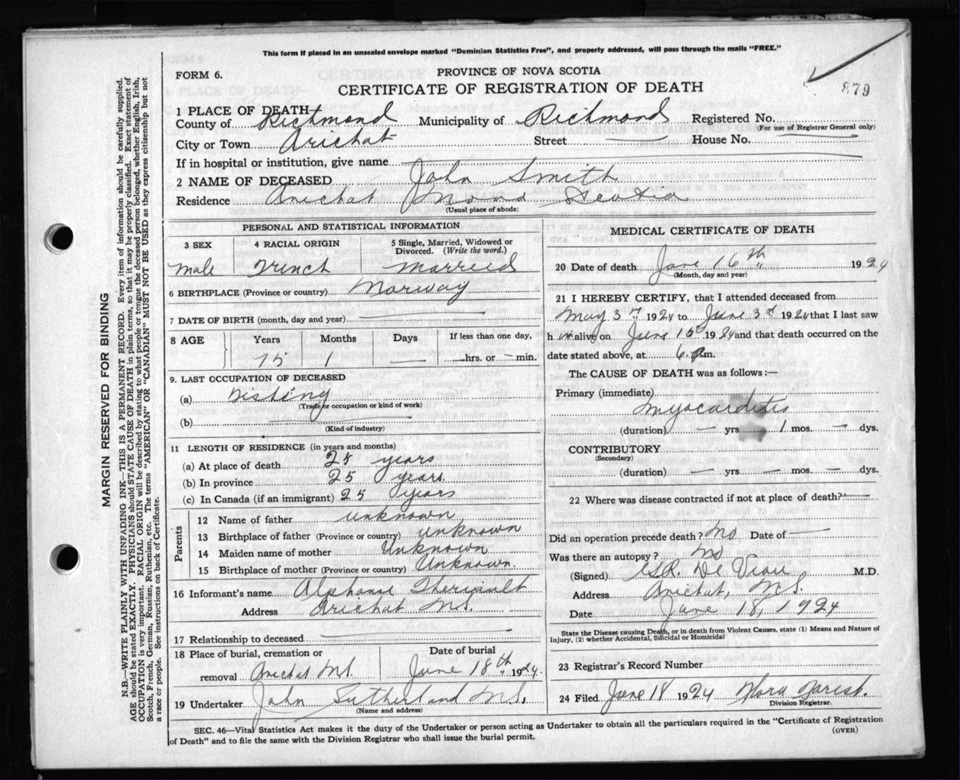 This form if placed in an unsealed envelope marked "Dominion Statistics Free", and properly addressed, will pass through the mails "FREE."
FORM 6.
PROVINCE OF NOVA SCOTIA
CERTIFICATE OF REGISTRATION OF DEATH
879
1 PLACE OF DEATH—
County of Richmond Municipality of Richmond Registered No.
(For use of Registrar General only)
City or Town Arichat Street — House No. —
If in hospital or institution, give name —
2 NAME OF DECEASED John Smith
Residence Arichat Nova Scotia
(Usual place of abode)
PERSONAL AND STATISTICAL INFORMATION
3 SEX 4 RACIAL ORIGIN 5 Single, Married, Widowed or Divorced. (Write the word.)
Male French Married
6 BIRTHPLACE (Province or country) Norway
7 DATE OF BIRTH (month, day and year) —
8 AGE Years Months Days If less than one day,
75 1 — — hrs. or — min.
9. LAST OCCUPATION OF DECEASED
(a) Fishing
(Trade or occupation or kind of work)
(b) —
(Kind of industry)
11 LENGTH OF RESIDENCE (in years and months)
(a) At place of death 25 years
(b) In province 25 years
(c) In Canada (if an immigrant) 25 years
Parents
12 Name of father unknown
13 Birthplace of father (Province or country) unknown
14 Maiden name of mother Unknown
15 Birthplace of mother (Province or country) Unknown
16 Informant's name Alphonse Theriault
Address Arichat N.S.
17 Relationship to deceased —
18 Place of burial, cremation or removal Arichat N.S. Date of burial June 18th 1924.
19 Undertaker John Sutherland N.S.
(Name and address)
MEDICAL CERTIFICATE OF DEATH
20 Date of death June 16th 1924
(Month, day and year)
21 I HEREBY CERTIFY, that I attended deceased from
May 3rd 1924 to June 3rd 1924 that I last saw
h im alive on June 15 1924 and that death occurred on the
date stated above, at 6 p.m.
The CAUSE OF DEATH was as follows:—
Primary (immediate)
Myocarditis
(duration) — yrs 1 mos. — dys.
CONTRIBUTORY
(Secondary)
(duration) — yrs — mos. — dys.
22 Where was disease contracted if not at place of death? —
Did an operation precede death? No Date of —
Was there an autopsy? No
(Signed) De M.D.
Address Arichat, N.S.
Date June 18, 1924
State the Disease causing Death, or in death from Violent Causes, state (1) Means and Nature of Injury, (2) whether Accidental, Suicidal or Homicidal
23 Registrar's Record Number
24 Filed June 18 1924 Flora
Division Registrar.
SEC. 46—Vital Statistics Act makes it the duty of the Undertaker or person acting as Undertaker to obtain all the particulars required in the "Certificate of Registration
of Death" and to file the same with the Division Registrar who shall issue the burial permit.
(OVER)
MARGIN RESERVED FOR BINDING
N.B.—WRITE PLAINLY WITH UNFADING INK—THIS IS A PERMANENT RECORD. Every item of information should be carefully supplied.
AGE should be stated EXACTLY. PHYSICIANS should STATE CAUSE OF DEATH in plain terms, so that it may be properly classified. Exact statement of
OCCUPATION is very important. RACIAL ORIGIN will be described by stating to what people or tongue the deceased person belonged, whether English, Irish,
Scotch, French, German, Russian, Ruthenian, etc. The terms "AMERICAN" or "CANADIAN" MUST NOT BE USED as they express citizenship but not
a race or people. See instructions on back of Certificate.